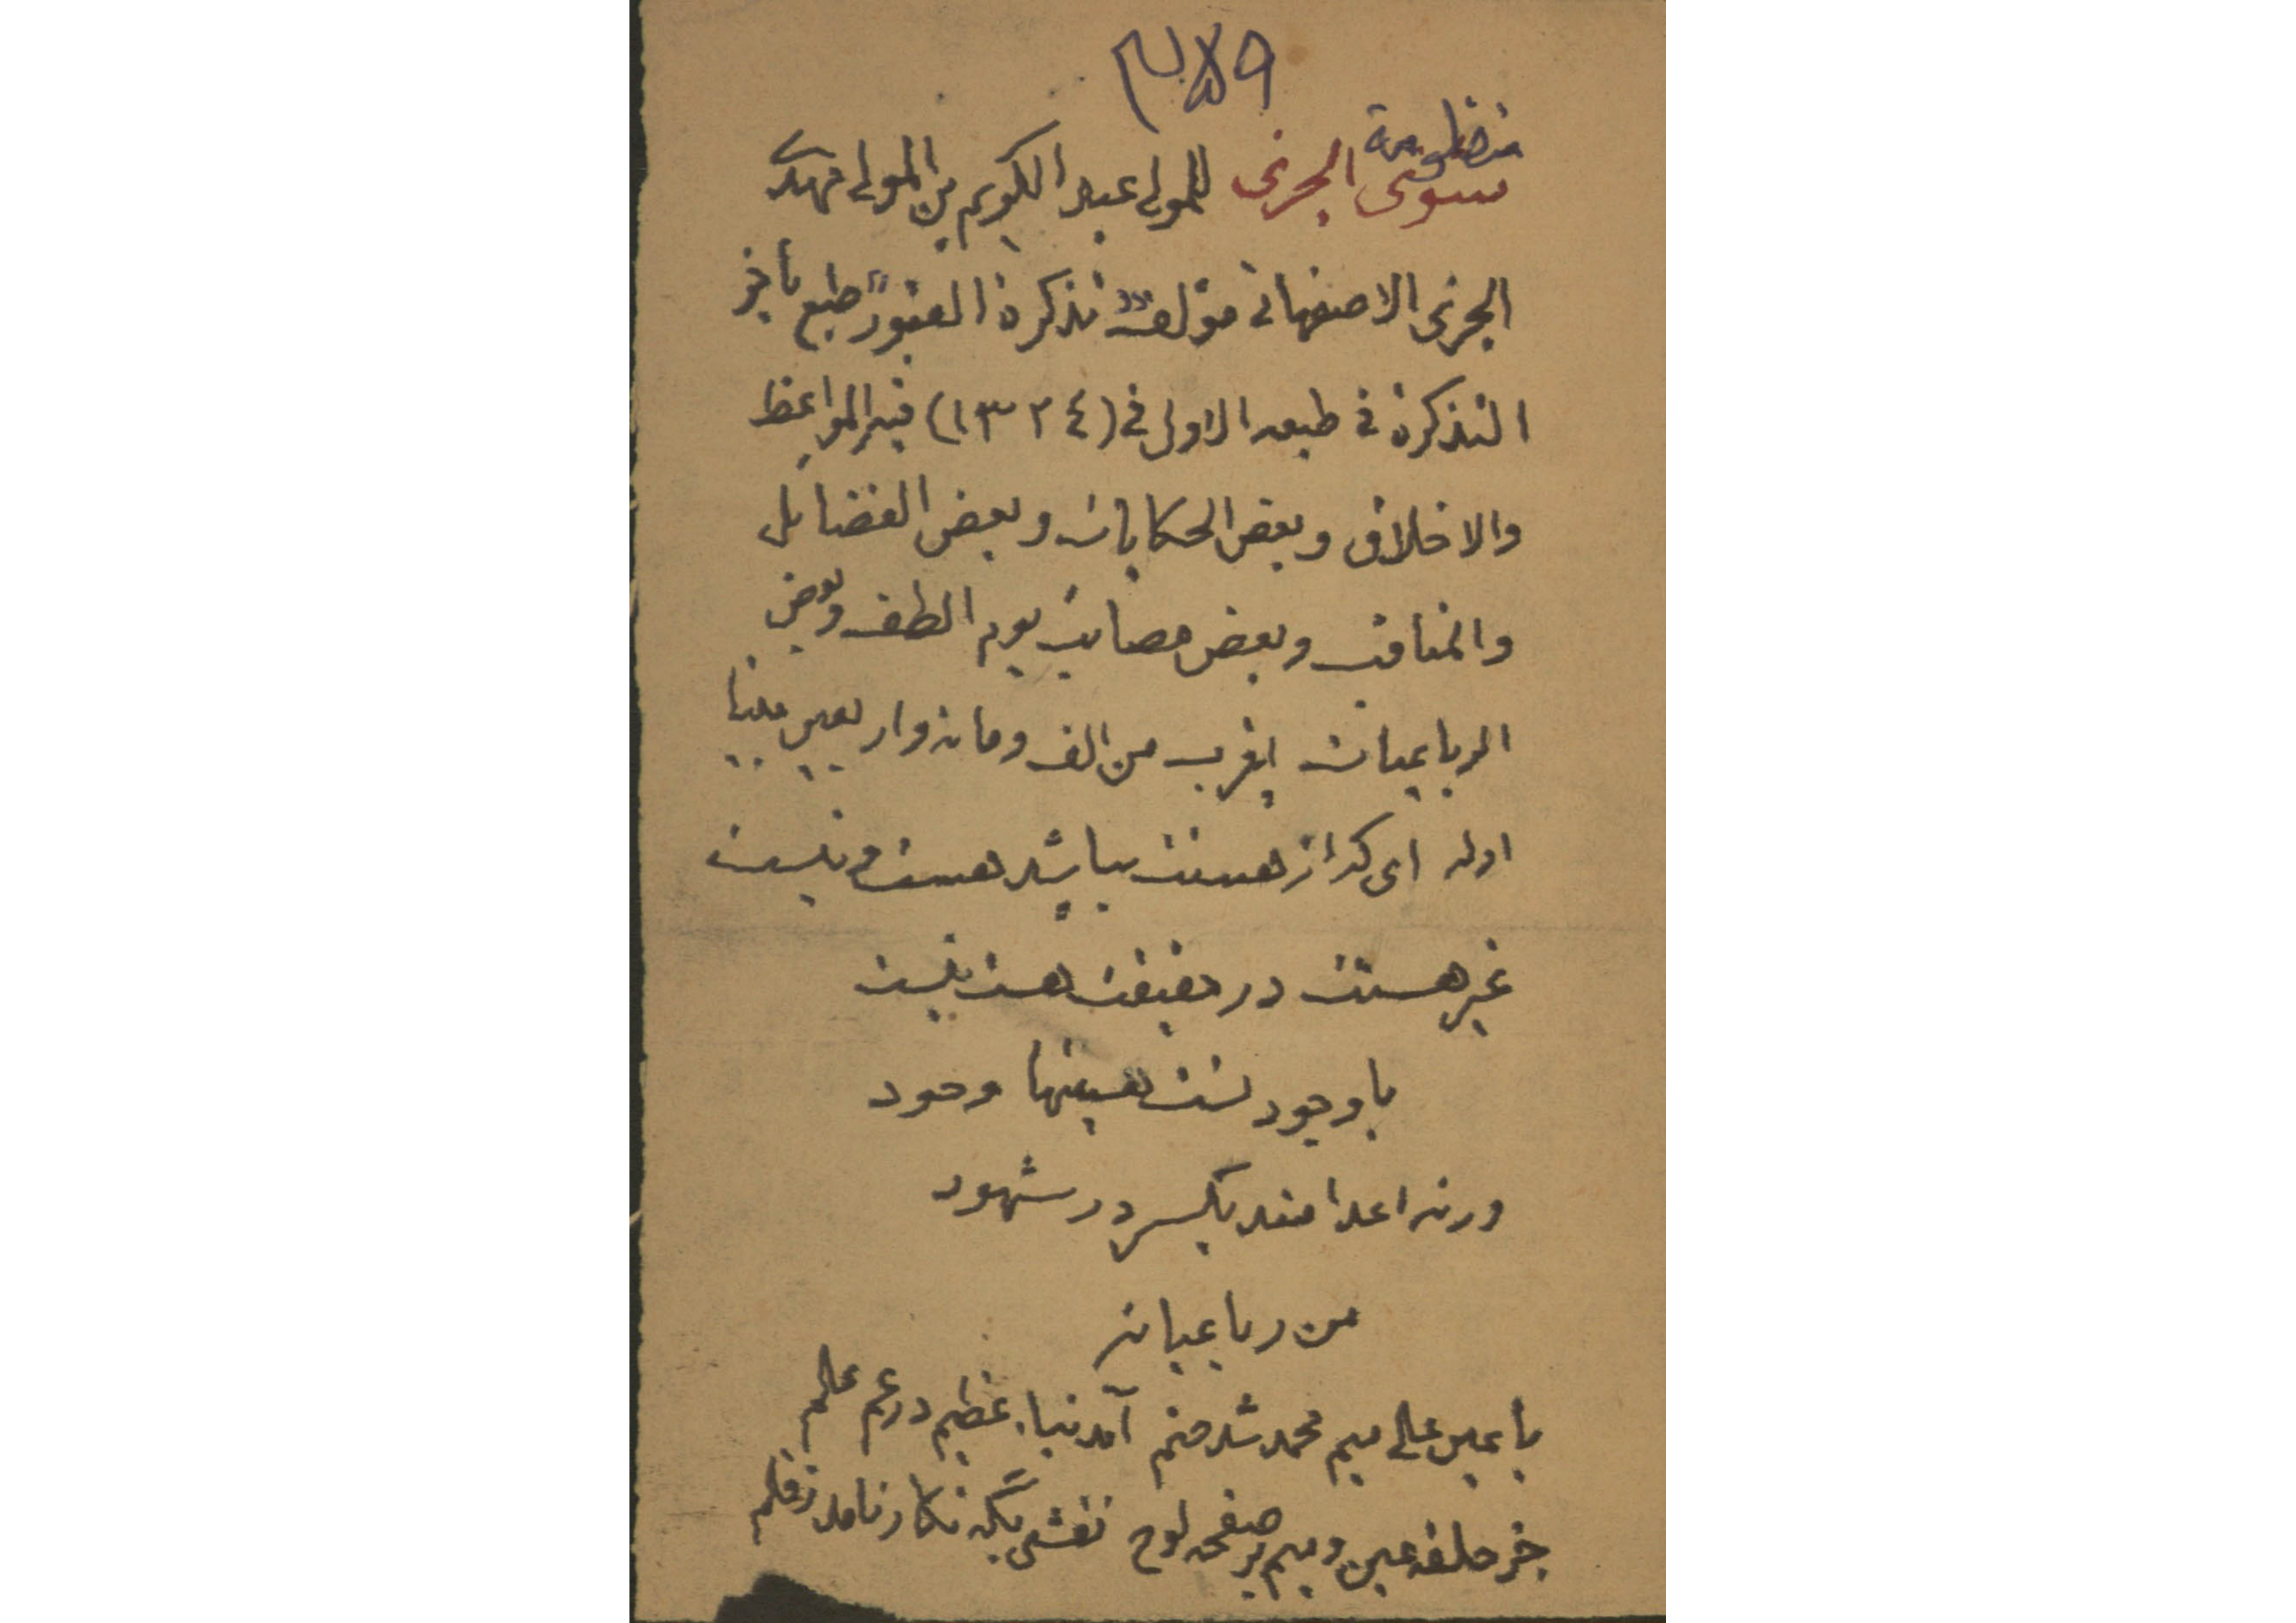 منظومة
مثنوی الجزی للمولی عبد الکریم بن المولی مهدی
الجزی الاصفهانی مؤلف "تذکرة القبور" طبع بآخر
التذکرة فی طبعه الاولی فی (۱۳۲٤) فیه المواعظ
والاخلاق وبعض الحکایات وبعض الفضایل
والمناقب وبعض مصایب یوم الطف وبعض
الرباعیات یقرب من الف ومائة واربعین بیتا
اوله ای که از هستیت باشد هست و نیست
غیر هستیت در حقیقت هست نیست
با وجود تست هستیها وجود
ورنه اعدامند یکسر در شهود
من رباعیاته
با عین علی میم محمد شد ضم آمد نباء عظیم در عم علم
جز حلقه عین و میم بر صفحه لوح نقشی نگار نامد ز قلم